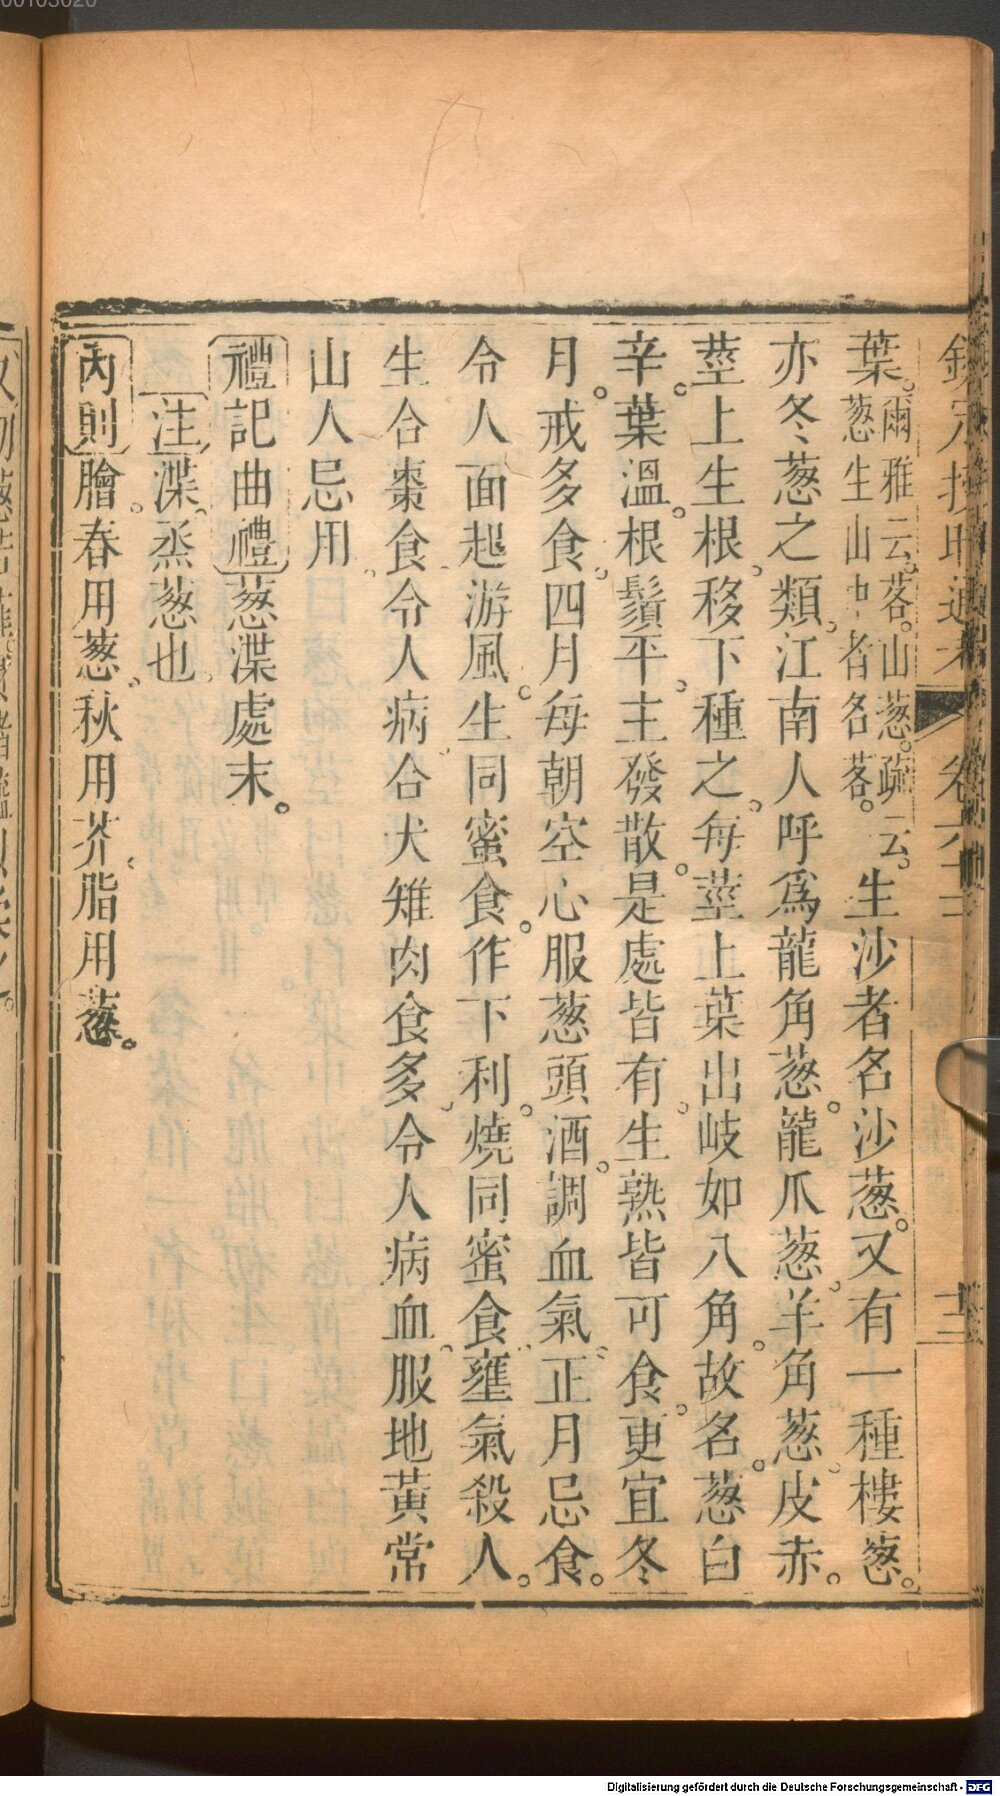 欽定授時通考
葉。爾雅云。茖。山葱。疏云。葱生山中者名茖。生沙者名沙葱。又有一種樓葱。
亦冬葱之類，江南人呼爲龍角葱。龍爪葱，羊角葱，皮赤。
莖上生根，移下種之，每莖上葉出岐如八角。故名。葱白
辛。葉溫。根鬚平，主發散。是處皆有，生熟皆可食，更宜冬
月。戒多食，四月每朝空心服葱頭酒。調血氣，正月忌食。
令人面起游風。生同蜜食。作下利。燒同蜜食，壅氣殺人。
生合棗食，令人病，合犬雉肉食多，令人病血，服地黃常
山人忌用，
禮記曲禮葱渫處末。
注渫，烝葱也，
內則膾，春用葱，秋用芥，脂用葱。
Digitalisierung gefördert durch die Deutsche Forschungsgemeinschaft - DFG